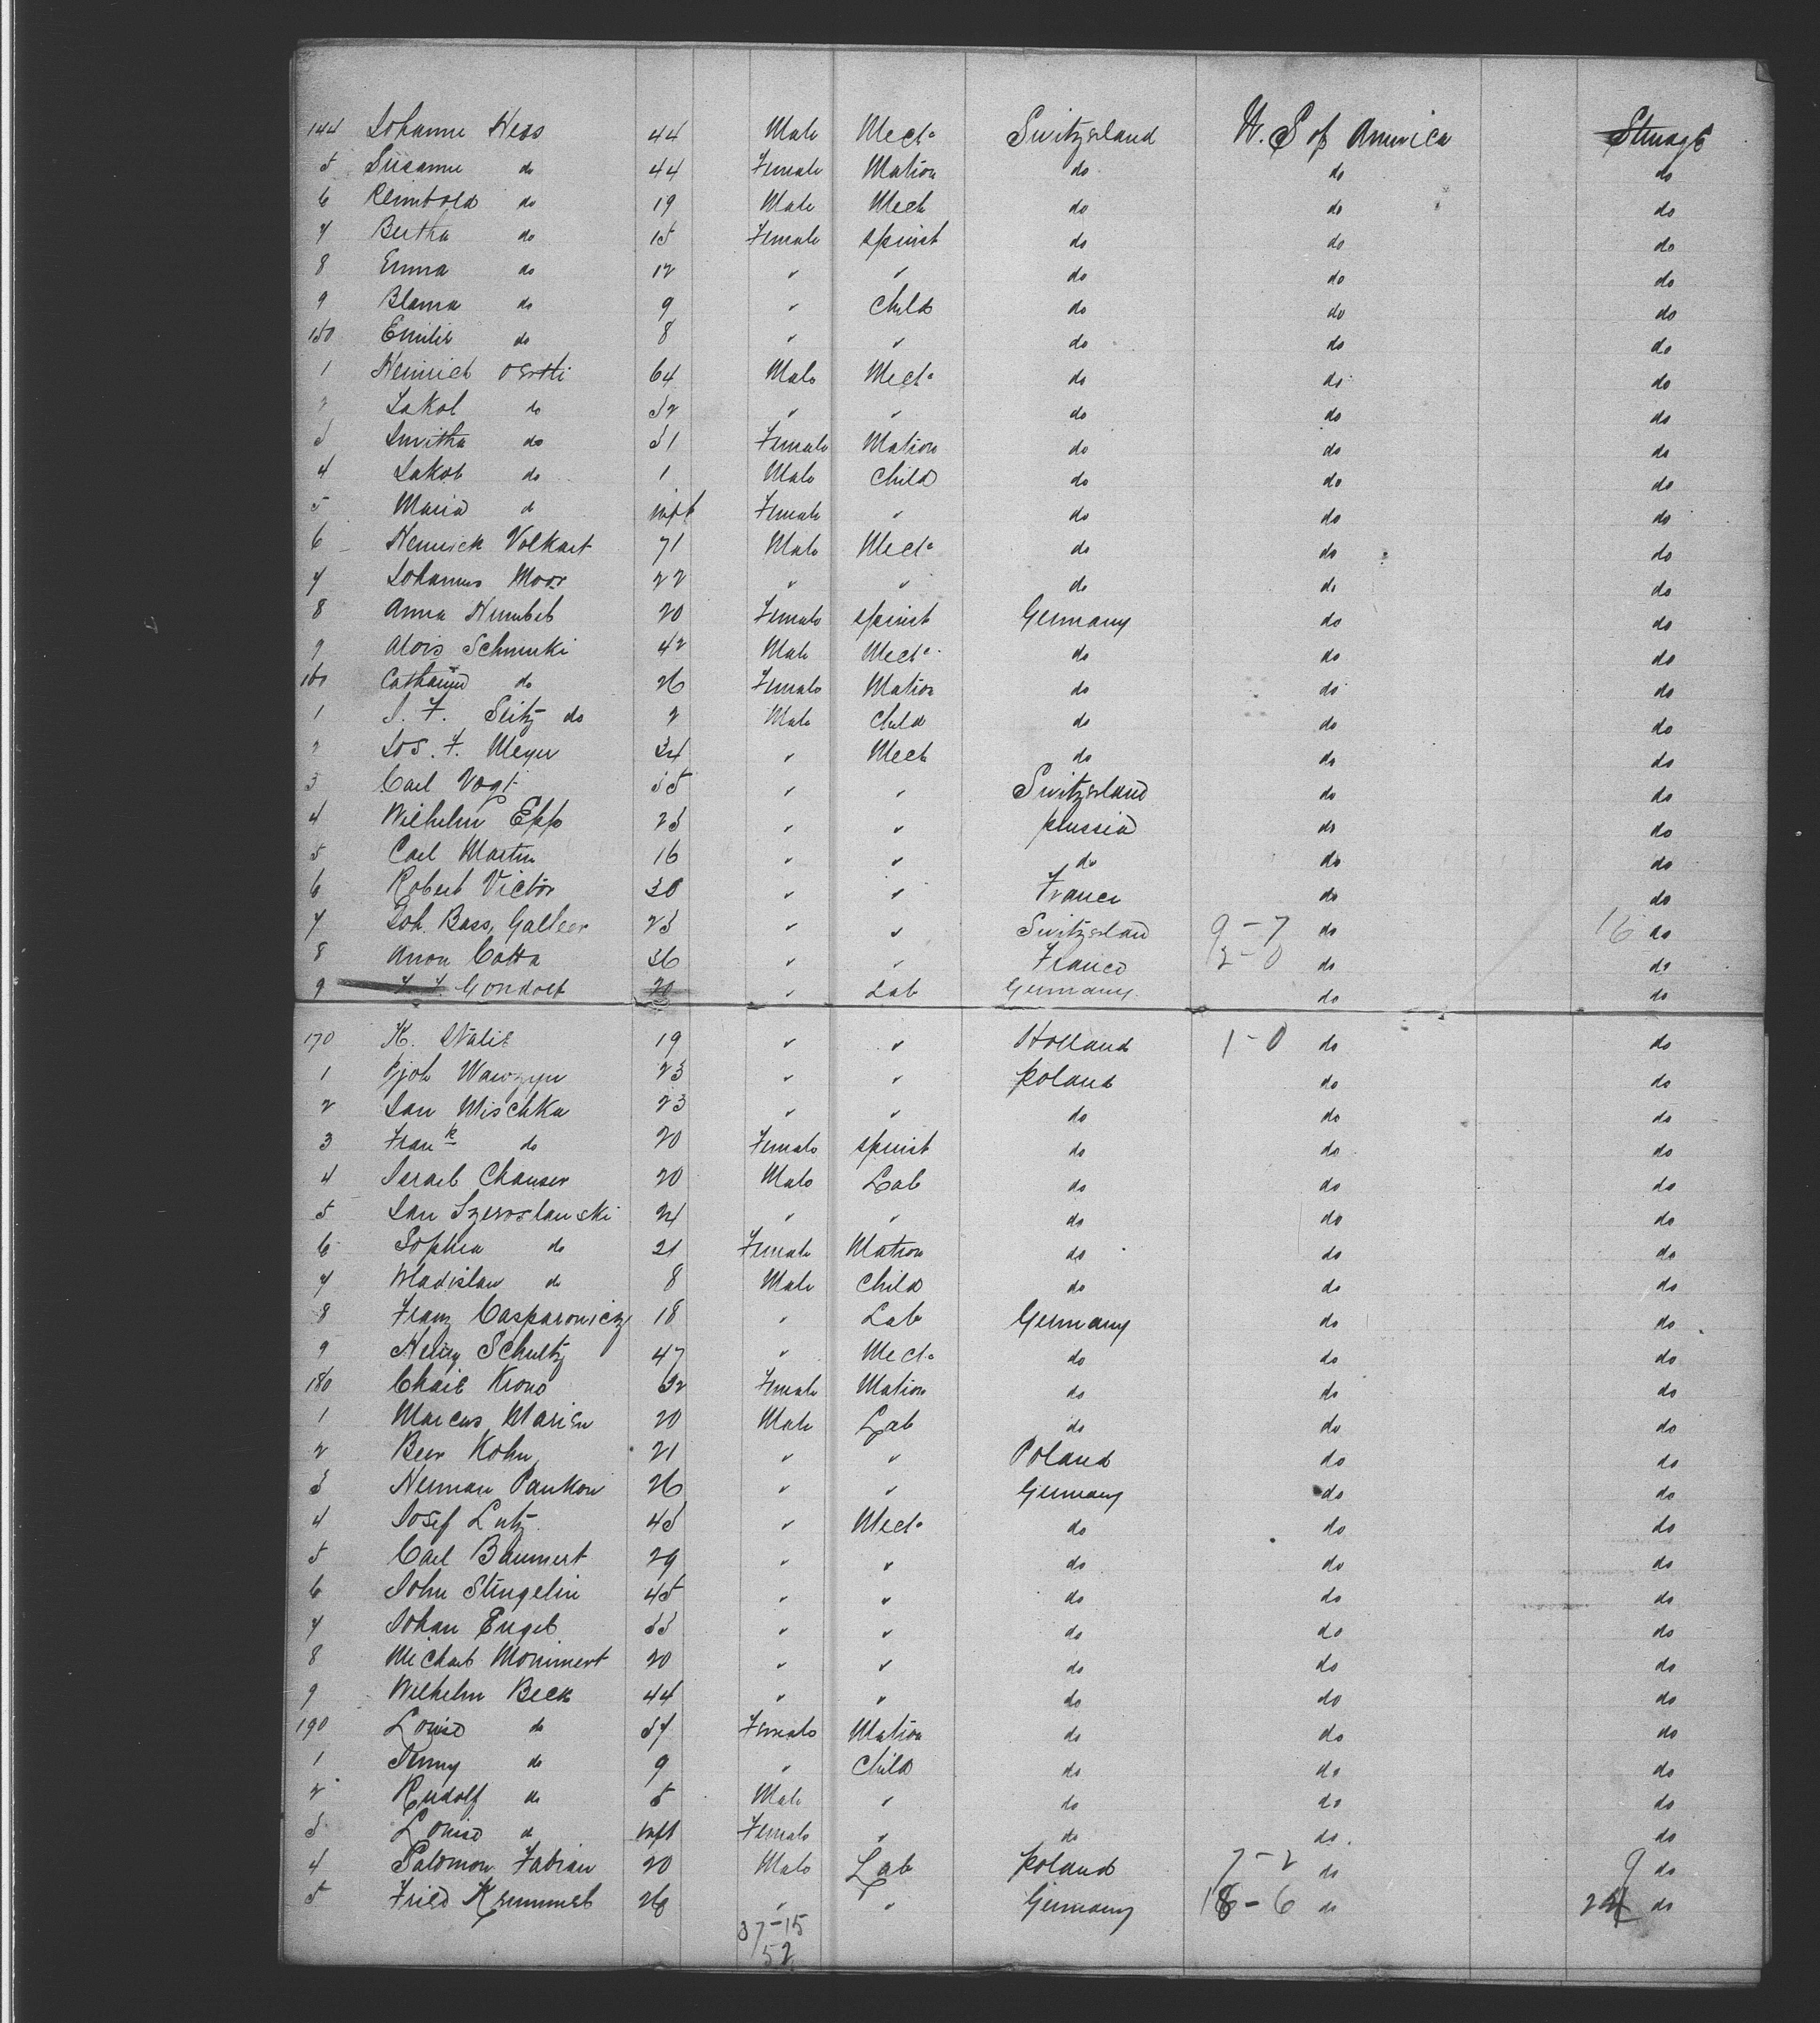 144 Johanne Hess 44 Male Mech. Switzerland U. S of America Steerage
5 Susanne do 44 Female Matron do do do
6 Reinhold do 19 Male Mech do do do
7 Bertha do 15 Female Spinst do do do
8 Emma do 12 " " do do do
9 Blama do 9 " Child do do do
150 Emilie do 8 " " do do do
1 Heinrich Oertli 64 Male Mech. do do do
2 Jakob do 32 " " do do do
3 do 31 Female Matron do do do
4 Jakob do 1 Male Child do do do
5 Maria do inft Female " do do do
6 Heinrich Volkart 71 Male Mech. do do do
7 Johannes Moor 22 " " do do do
8 Anna 20 Female Spinst Germany do do
9 Alois Schmuki 42 Male Mech. do do do
160 Catharine do 26 Female Matron do do do
1 J. F. Seitz do 2 Male Child do do do
2 Jos. F. Meyer 34 " Mech do do do
3 Carl Vogt 35 " " Switzerland do do
4 Wilhelm Epp 23 " " Prussia do do
5 Carl Martin 16 " " do do do
6 Robert Victor 30 " " France do do
7 Joh. Bass, Galleer 23 " " Switzerland 9-7 do 16 do
8 Anon Cotta 36 " " France 2-0 do do
9 Gondolf 20 " Lab Germany do do
170 K. Nalie 19 " " Holland 1-0 do do
1 Wawrzyn 23 " " Poland do do
2 Jan Mischka 23 " " do do do
3 Frank do 20 Female Spinst do do do
4 Israel Chauser 20 Male Lab do do do
5 Jan Szeroslanski 24 " " do do do
6 Sophia do 21 Female Matron do do do
7 Wladislaw do 8 Male Child do do do
8 Franz Casparowicz 18 " Lab Germany do do
9 Henry Schultz 47 " Mech. do do do
180 Chaie Krono 32 Female Matron do do do
1 Marcus Marien 20 Male Lab do do do
2 Beer Kohn 21 " " Poland do do
3 Herman Pankow 26 " " Germany do do
4 Josef Lutz 43 " Mech. do do do
5 Carl Baumert 29 " " do do do
6 John Stingelin 45 " " do do do
7 Johan Engel 33 " " do do do
8 Michael Moniment 20 " " do do do
9 Wilhelm Beck 44 " " do do do
190 Louise do 37 Female Matron do do do
1 Jenny do 9 " Child do do do
2 Rudolf do 5 Male " do do do
3 Louise do inft Female " do do do
4 Salomon Fabian 20 Male Lab Poland 7-2 do 9 do
5 Fried Krummel 26 " " Germany 18-6 do 24 do
37-15
52